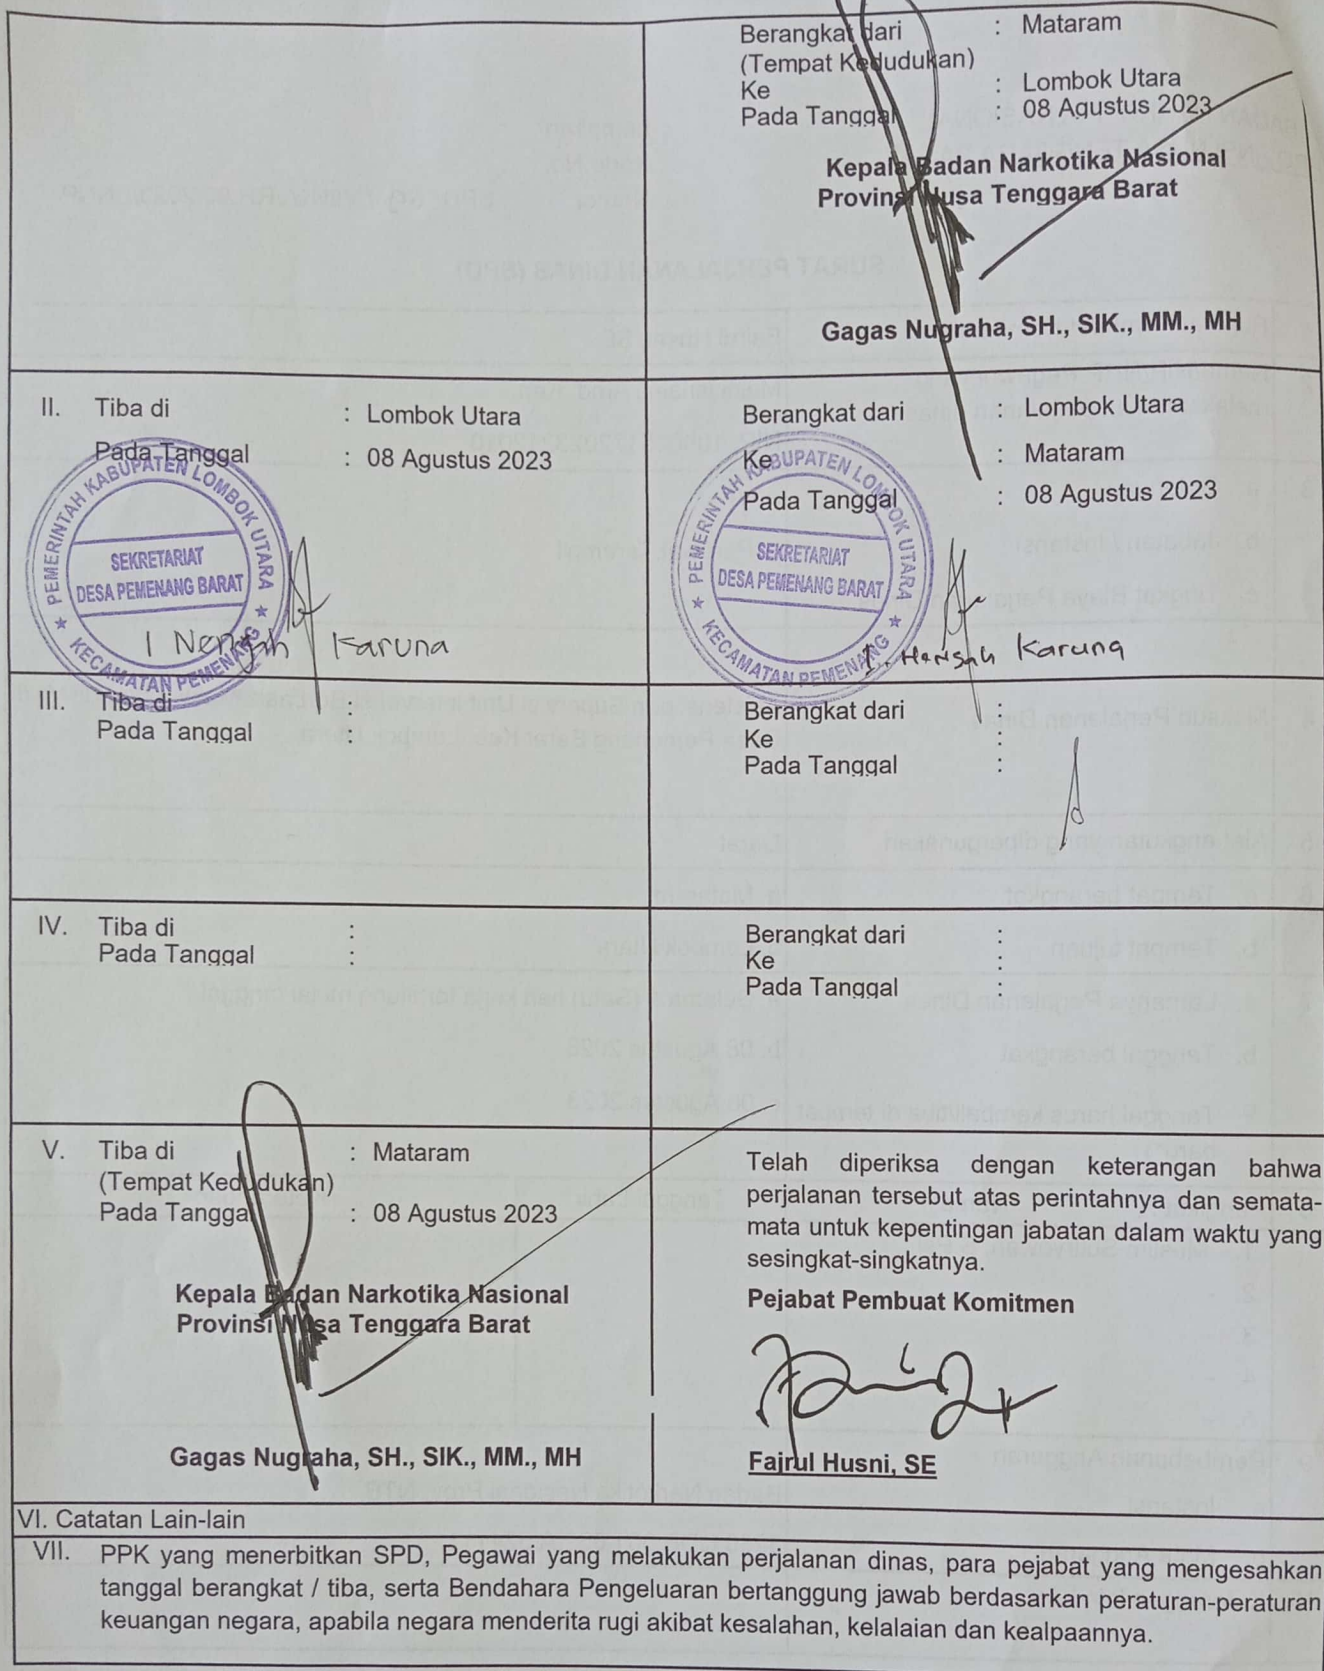 Berangkat dari : Mataram
(Tempat Kedudukan)
Ke : Lombok Utara
Pada Tanggal : 08 Agustus 2023
Kepala Badan Narkotika Nasional
Provinsi Nusa Tenggara Barat
Gagas Nugraha, SH., SIK., MM., MH
II. Tiba di : Lombok Utara
Pada Tanggal : 08 Agustus 2023
PEMERINTAH KABUPATEN LOMBOK UTARA
SEKRETARIAT
DESA PEMENANG BARAT
KECAMATAN PEMENANG
I Nengah Karuna
Berangkat dari : Lombok Utara
Ke : Mataram
Pada Tanggal : 08 Agustus 2023
PEMERINTAH KABUPATEN LOMBOK UTARA
SEKRETARIAT
DESA PEMENANG BARAT
KECAMATAN PEMENANG
Karuna
III. Tiba di :
Pada Tanggal :
Berangkat dari :
Ke :
Pada Tanggal :
IV. Tiba di :
Pada Tanggal :
Berangkat dari :
Ke :
Pada Tanggal :
V. Tiba di : Mataram
(Tempat Kedudukan)
Pada Tanggal : 08 Agustus 2023
Kepala Badan Narkotika Nasional
Provinsi Nusa Tenggara Barat
Gagas Nugraha, SH., SIK., MM., MH
Telah diperiksa dengan keterangan bahwa
perjalanan tersebut atas perintahnya dan semata-
mata untuk kepentingan jabatan dalam waktu yang
sesingkat-singkatnya.
Pejabat Pembuat Komitmen
Fajrul Husni, SE
VI. Catatan Lain-lain
VII. PPK yang menerbitkan SPD, Pegawai yang melakukan perjalanan dinas, para pejabat yang mengesahkan
tanggal berangkat / tiba, serta Bendahara Pengeluaran bertanggung jawab berdasarkan peraturan-peraturan
keuangan negara, apabila negara menderita rugi akibat kesalahan, kelalaian dan kealpaannya.